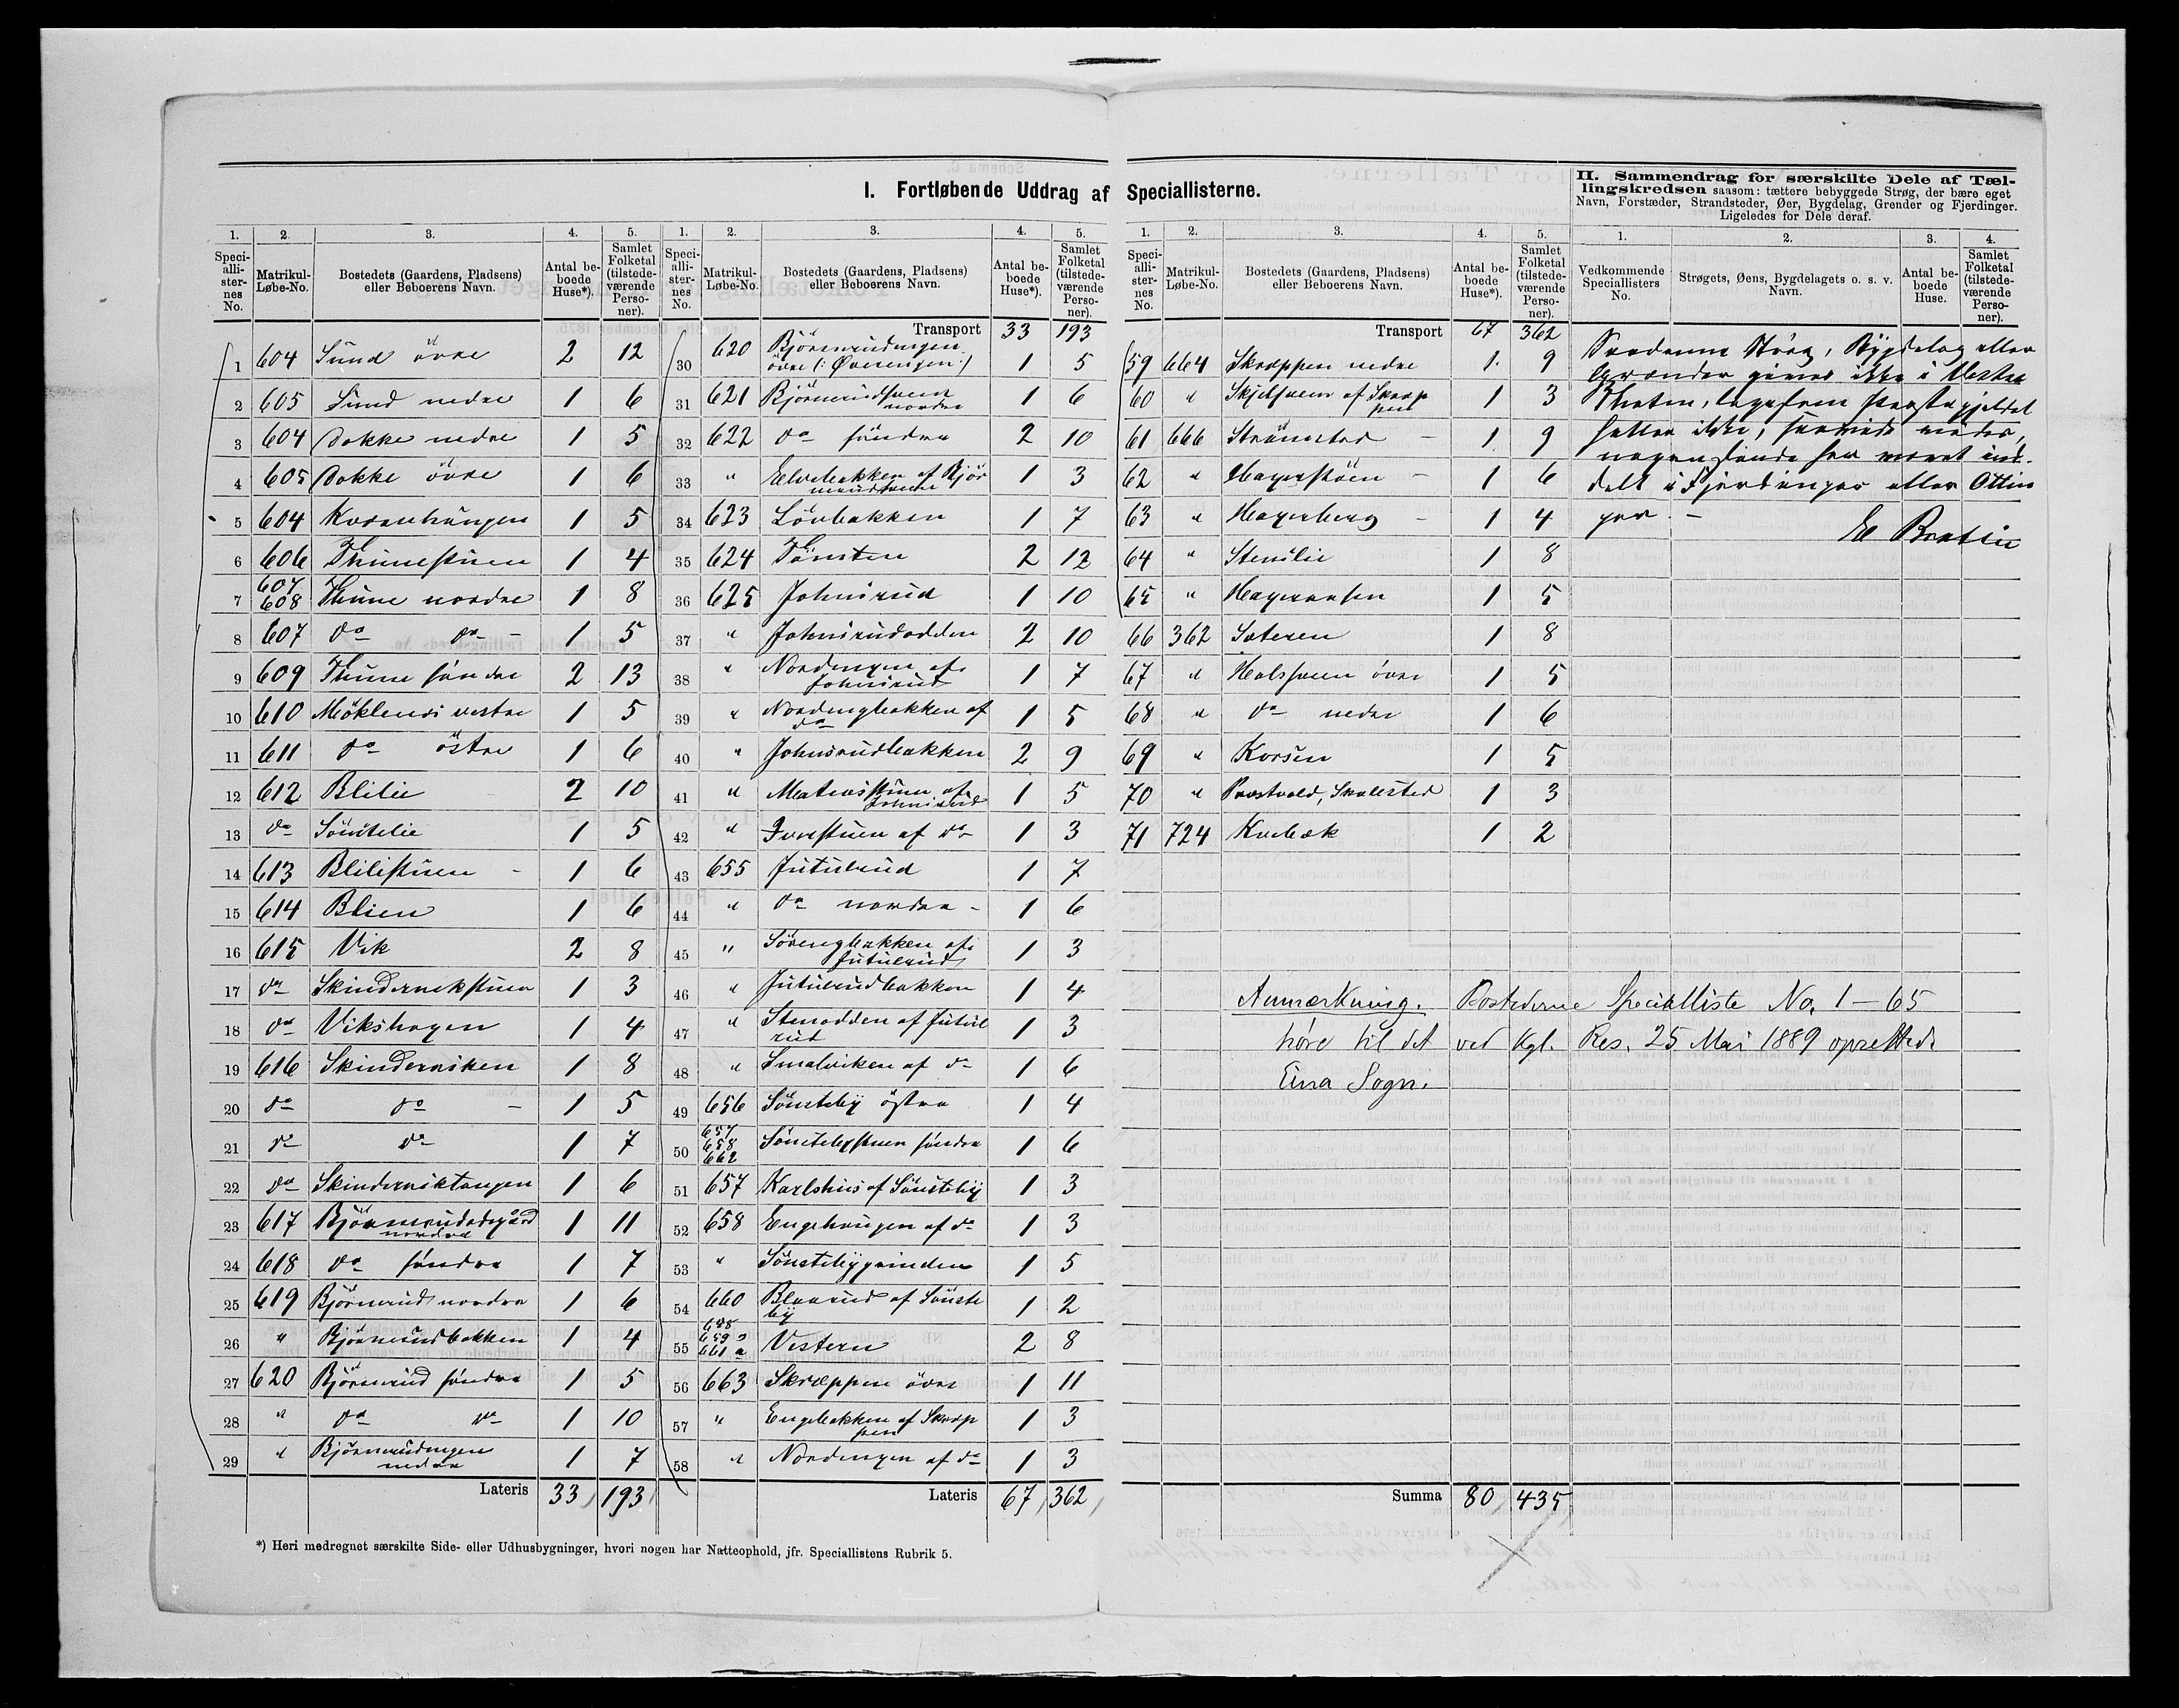 I. Fortløbende Uddrag af Speciallisterne.
1. Speciallisternes No. | 2. Matrikul-Løbe-No. | 3. Bostedets (Gaardens, Pladsens) eller Beboerens Navn. | 4. Antal beboede Huse*). | 5. Samlet Folketal (tilstedeværende Personer).
1 604 Sund övre 2 12
2 605 Sund nedre 1 6
3 604 Sokke nedre 1 5
4 605 Sokke övre 1 6
5 604 Kværnhaugen 1 5
6 606 Thunestuen 1 4
7 607 608 Thune nordre 1 8
8 607 do do - 1 5
9 609 Thune søndre 2 13
10 610 Möklend vestre 1 5
11 611 do östre 1 6
12 612 Blilie 2 10
13 do Sönstelie 1 5
14 613 Blilistuen - 1 6
15 614 Blien 1 6
16 615 Vik 2 8
17 do Skindervikstuen 1 3
18 do Vikshagen 1 4
19 616 Skinderviken 1 8
20 do do - 1 5
21 do do 1 7
22 do Skinderviktangen 1 6
23 617 Björnerudsgård nordre 1 11
24 618 do søndre 1 7
25 619 Björnerud nordre 1 6
26 " Björnerudbakken 1 4
27 620 Björnerud søndre 1 5
28 " do do 1 10
29 " Björnerudengen nedre 1 7
Lateris 33 193
1. Speciallisternes No. | 2. Matrikul-Løbe-No. | 3. Bostedets (Gaardens, Pladsens) eller Beboerens Navn. | 4. Antal beboede Huse*). | 5. Samlet Folketal (tilstedeværende Personer).
Transport 33 193
30 620 Björnerudengen övre (: Øverengen :) 1 5
31 621 Björnerudsveen nordre 1 6
32 622 do søndre 2 10
33 " Elvebakken af Björnerudsveen 1 3
34 623 Lövbakken 1 7
35 624 Tönsten 2 12
36 625 Johnsrud 1 10
37 " Johnsrudodden 2 10
38 " Nordengen af Johnsrud 1 7
39 " Nordengbakken af do 1 5
40 " Johnsrudbakken 2 9
41 " Mathisstuen af Johnsrud 1 5
42 " Iverstuen af do 1 3
43 655 Jutulrud 1 7
44 " do nordre - 1 6
45 " Sörengbakken af Jutulrud 1 3
46 " Jutulrudbakken 1 4
47 " Stenodden af Jutulrud 1 3
48 " Smalviken af do 1 6
49 656 Sönsteby östre 1 4
50 657 658 662 Sönstebystuen søndre 1 6
51 657 Karlshus af Sönsteby 1 3
52 658 Engehaugen af do 1 3
53 " Sönstebygrinden 1 5
54 660 Blaarud af Sönsteby 1 2
55 658 659 661 a Vestern 2 8
56 663 Skræppen övre 1 11
57 " Engebakken af Skræppen 1 3
58 " Nordengen af do 1 3
Lateris 67 362
1. Speciallisternes No. | 2. Matrikul-Løbe-No. | 3. Bostedets (Gaardens, Pladsens) eller Beboerens Navn. | 4. Antal beboede Huse*). | 5. Samlet Folketal (tilstedeværende Personer).
Transport 67 362
59 664 Skræppen nedre 1 9
60 " Skjelsveen af Skræppen 1 3
61 666 Strömstad - 1 9
62 " Hagerstöen - 1 6
63 " Hagerberg - 1 4
64 " Stenslie 1 8
65 " Hageraasen 1 5
66 362 Sæteren 1 8
67 " Halssveen övre 1 5
68 " do nedre 1 6
69 " Korsen 1 5
70 " Prestvold, Skolested 1 3
71 724 Kvebæk 1 2
Anmærkning. Bostederne Specialliste No. 1–65
høre til det ved Kgl. Res. 25 Mai 1889 oprettede
Eina Sogn.
Summa 80 435
II. Sammendrag for særskilte Dele af Tællingskredsen saasom: tættere bebyggede Strøg, der bære eget
Navn, Forstæder, Strandsteder, Øer, Bygdelag, Grender og Fjerdinger.
Ligeledes for Dele deraf.
1. Vedkommende Speciallisters No. | 2. Strøgets, Øens, Bygdelagets o. s. v. Navn. | 3. Antal beboede Huse. | 4. Samlet Folketal (tilstedeværende Personer).
Saadanne Strög, Bygdelag eller
Grænder gives ikke i Vestre
Thoten, Præstegjeldet
heller ikke,
nogensinde har været ind-
delt i Fjerdinger eller Ottin
ger. -
*) Heri medregnet særskilte Side- eller Udhusbygninger, hvori nogen har Natteophold, jfr. Speciallistens Rubrik 5.